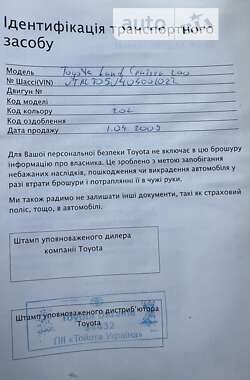 Ідентифікація транспортного
засобу
Модель Toyota Land Cruiser 200
№ Шассі(VIN)
Двигун №
Код моделі
Код кольору 202
Код оздоблення
Дата продажу 1.04 2009
Для Вашої персональної безпеки Toyota не включає в цю брошуру
інформацію про власника. Це зроблено з метою запобігання
небажаних наслідків, пошкодження чи викрадення автомобіля у
разі втрати брошури і потраплянні її в чужі руки.
Ми також радимо не залишати інші документи, такі як страховий
поліс, тощо, в автомобілі.
Штамп уповноваженого дилера
компанії Toyota
Штамп уповноваженого дистриб'ютора
Toyota
ПІІ «Тойота Україна»